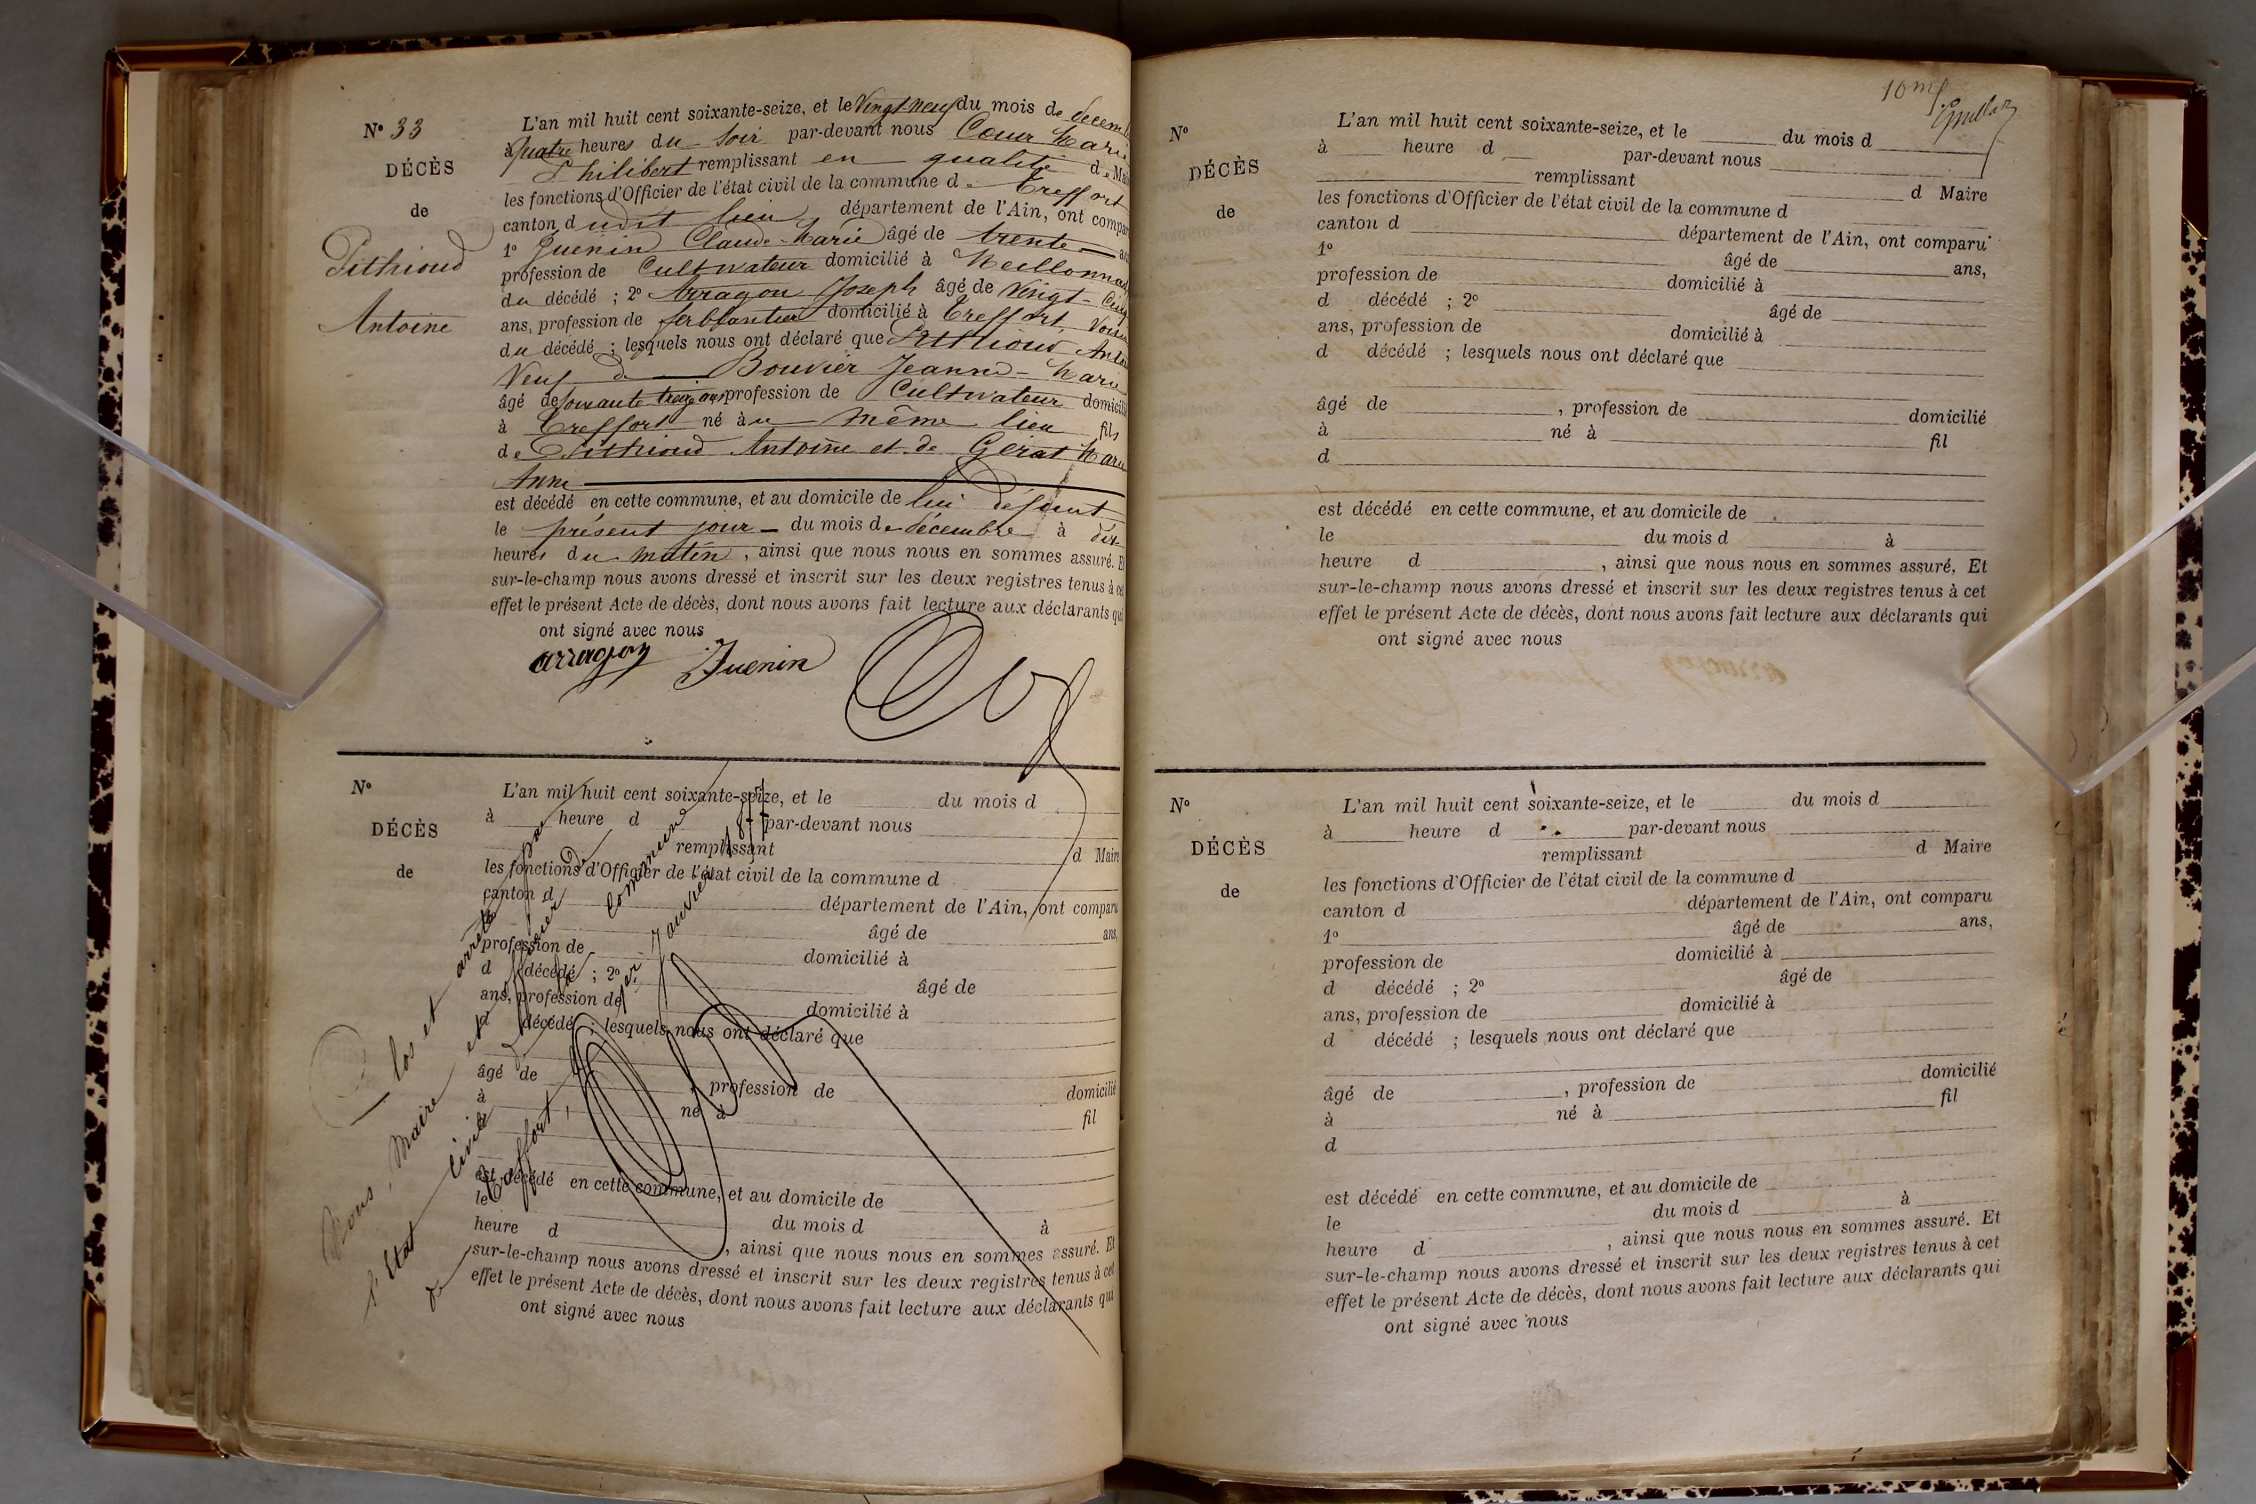 N° 33
DÉCÈS
de
Pithioud
Antoine
L'an mil huit cent soixante-seize, et le Vingt-neuf du mois de décem
à quatre heures du soir par-devant nous Cœur Marie
Philibert remplissant en qualité de Mai
les fonctions d'Officier de l'état civil de la commune de Treffort
canton dudit lieu département de l'Ain, ont compar
1° Juenin Claude-Marie âgé de trente an
profession de Cultivateur domicilié à Meillonna
du décédé ; 2° Arragon Joseph âgé de Vingt-Cinq
ans, profession de ferblantier domicilié à Treffort, Voisin
du décédé ; lesquels nous ont déclaré que Pithioud Antoi
Veuf de Bouvier Jeanne-Marie
âgé de soixante treize ans profession de Cultivateur domicilié
à Treffort né au même lieu fils
de Pithioud Antoine et de Gérat Marie
Anne
est décédé en cette commune, et au domicile de lui défunt
le présent jour du mois de décembre à dix
heures du matin, ainsi que nous nous en sommes assuré. Et
sur-le-champ nous avons dressé et inscrit sur les deux registres tenus à cet
effet le présent Acte de décès, dont nous avons fait lecture aux déclarants qui
ont signé avec nous
arragon Juenin
N°
DÉCÈS
de
L'an mil huit cent soixante-seize, et le du mois d
à heure d par-devant nous
remplissant d Maire
les fonctions d'Officier de l'état civil de la commune d
canton d département de l'Ain, ont comparu
âgé de ans,
profession de domicilié à
d décédé ; 2° âgé de
ans, profession de domicilié à
d décédé ; lesquels nous ont déclaré que
âgé de , profession de domicilié
à né à fil
est décédé en cette commune, et au domicile de
le du mois d à
heure d , ainsi que nous nous en sommes assuré. Et
sur-le-champ nous avons dressé et inscrit sur les deux registres tenus à cet
effet le présent Acte de décès, dont nous avons fait lecture aux déclarants qui
ont signé avec nous
Clos et arrêté par
Nous, Maire et officier de
l'état civil de la Commune
de Treffort, 1er Janvier 1877
10me
N°
DÉCÈS
de
L'an mil huit cent soixante-seize, et le du mois d
à heure d par-devant nous
remplissant d Maire
les fonctions d'Officier de l'état civil de la commune d
canton d département de l'Ain, ont comparu
1° âgé de ans,
profession de domicilié à
d décédé ; 2° âgé de
ans, profession de domicilié à
d décédé ; lesquels nous ont déclaré que
âgé de , profession de domicilié
à né à fil
d
est décédé en cette commune, et au domicile de
le du mois d à
heure d , ainsi que nous nous en sommes assuré. Et
sur-le-champ nous avons dressé et inscrit sur les deux registres tenus à cet
effet le présent Acte de décès, dont nous avons fait lecture aux déclarants qui
ont signé avec nous
N°
DÉCÈS
de
L'an mil huit cent soixante-seize, et le du mois d
à heure d par-devant nous
remplissant d Maire
les fonctions d'Officier de l'état civil de la commune d
canton d département de l'Ain, ont comparu
1° âgé de ans,
profession de domicilié à
d décédé ; 2° âgé de
ans, profession de domicilié à
d décédé ; lesquels nous ont déclaré que
âgé de , profession de domicilié
à né à fil
d
est décédé en cette commune, et au domicile de
le du mois d à
heure d , ainsi que nous nous en sommes assuré. Et
sur-le-champ nous avons dressé et inscrit sur les deux registres tenus à cet
effet le présent Acte de décès, dont nous avons fait lecture aux déclarants qui
ont signé avec nous